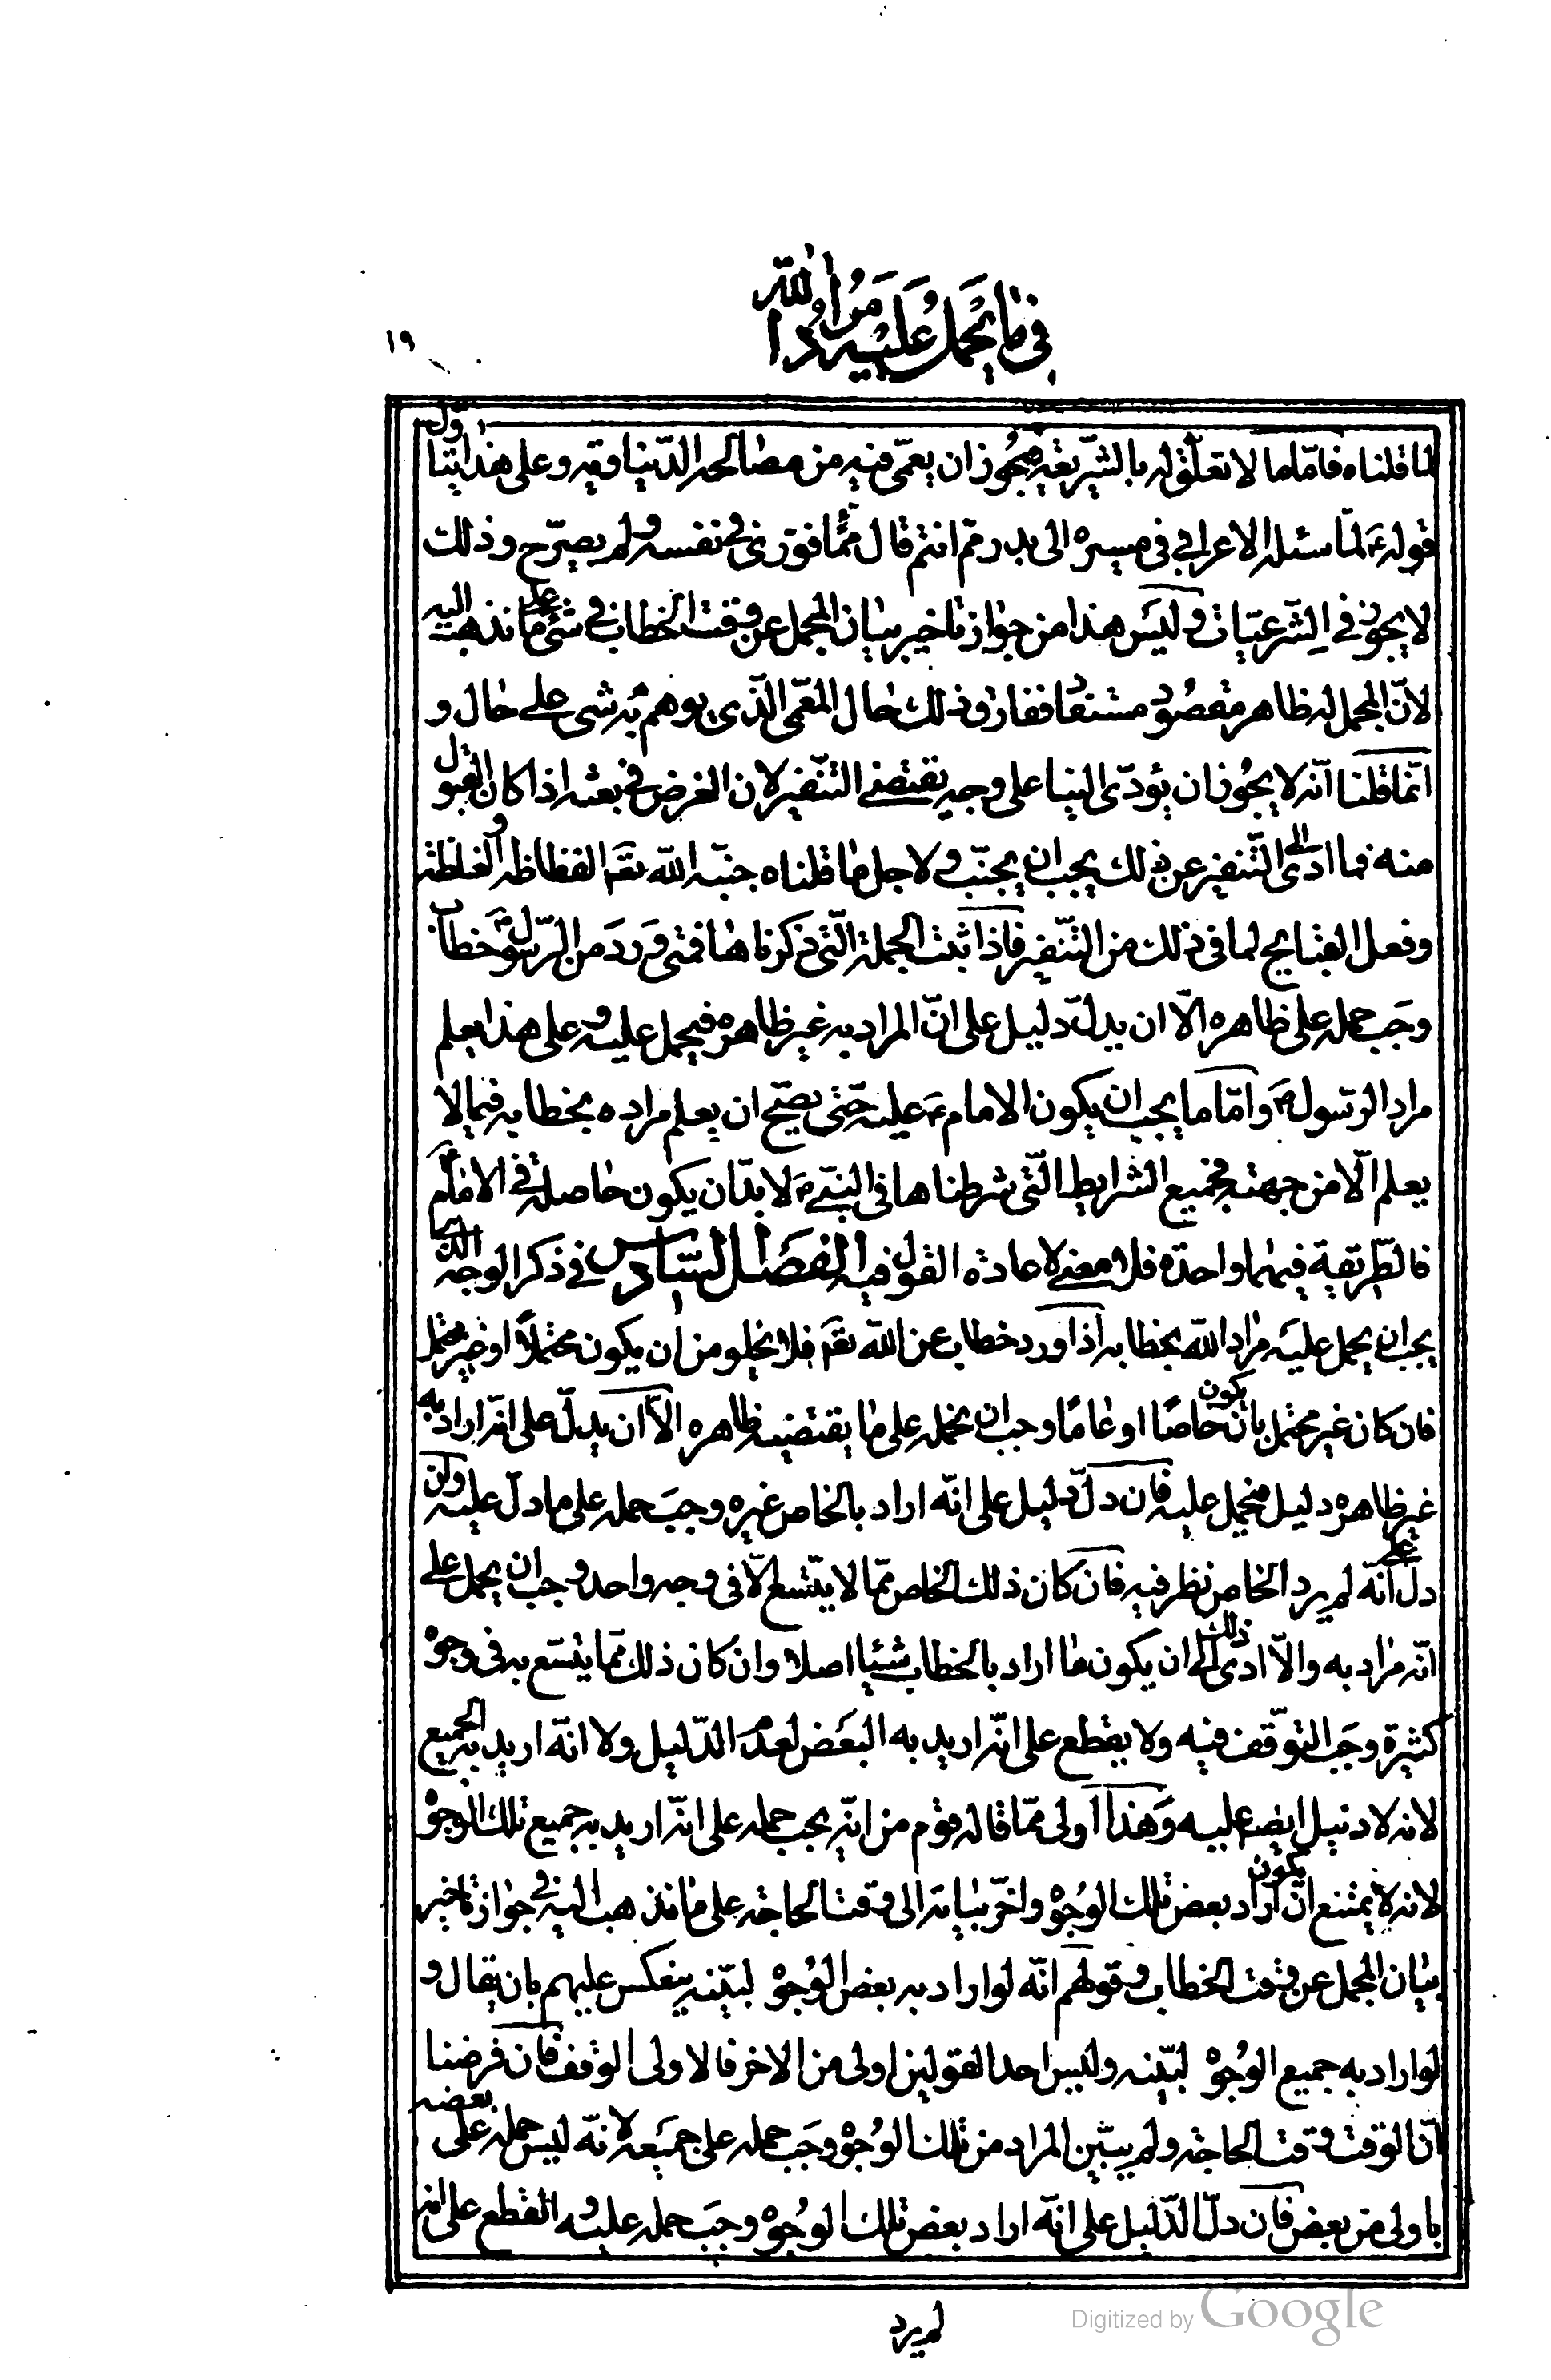 في ما يحمل عليه مراد الله
١٩
لما قلناه فامّا ما لا تعلّق له بالشّريعة فيجوز ان يعمّى فيه من مصالحه الدّنياويّة وعلى هذا يتاوّل
قوله ع لمّا سئله الاعرابي في مسيره الى بدر ممّ انتم قال ممّا فورّى في نفسه ولم يصرّح وذلك
لا يجوز في الشّرعيّات وليس هذا من جواز تاخير بيان المجمل عن وقت الخطاب في شئ على ما نذهب اليه
لانّ المجمل له ظاهر مقصود مستفاد ففارق ذلك حال المعمّى الّذي يوهم به شئ على حال و
انّما قلنا انّه لا يجوز ان يؤدّى الينا على وجه يقتضي التّنفير لان الغرض في بعثه اذا كان القبول
منه فما ادّى الى التّنفير عن ذلك يجب ان يجنّب ولاجل ما قلناه جنّبه الله تعَ الفظاظة والغلظة
وفعل القبايح لما في ذلك من التّنفير فاذا ثبت الجملة الّتي ذكرناها فمتى ورد من الرّسول ص خطاب
وجب حمله على ظاهره الّا ان يدلّ دليل على انّ المراد به غير ظاهره فيحمل عليه وعلى هذا يعلم
مراد الرّسول ص وامّا ما يجب ان يكون الامام ع عليه حتّى يصحّ ان يعلم مراده بخطابه فيما لا
يعلم الّا من جهته فجميع الشرايط الّتي شرطناها في النبيّ ص لا بدّ ان يكون حاصلة في الامام ع
فالطّريقة فيهما واحدة فلا معنى لاعادة القول فيه الفصل السّادس في ذكر الوجه الّذي
يجب ان يحمل عليه مراد الله بخطابه اذا ورد خطاب عن الله تعَ فلا يخلو من ان يكون محتملًا او غير محتمل
فان كان غير محتمل بان يكون خاصّا او عامّا وجب ان نحمله على ما يقتضيه ظاهره الّا ان يدلّ على انّه اراد به
غير ظاهره دليل فيحمل عليه فان دلّ دليل على انّه اراد بالخاص غيره وجب حمله على ما دلّ عليه وان
دلّ على انّه لم يرد الخاص نظر فيه فان كان ذلك الخاص ممّا لا يتّسع الّا في وجه واحد وجب ان يحمل على
انّه مراد به والّا ادّى ذلك الى ان يكون ما اراد بالخطاب شيئا اصلا وان كان ذلك ممّا يتسّع به في وجوه
كثيرة وجب التوقّف فيه ولا يقطع على انّه اريد به البعض لعدم الدّليل ولا انّه اريد به الجميع
لانه لا دليل ايضا عليه وهذا اولى ممّا قاله قوم من انّه يجب حمله على انّه اريد به جميع تلك الوجوه
لانه لا يمتنع ان يكون اراد بعض تلك الوجوه واخّر بيانه الى وقت الحاجة على ما نذهب اليه في جواز تاخير
بيان المجمل عن وقت الخطاب وقولهم انّه لو اراد به بعض الوجوه لبيّنه ينعكس عليهم بان يقال و
لو اراد به جميع الوجوه لبيّنه وليس احد القولين اولى من الاخر فالاولى الوقف فان فرضنا
انّ الوقت وقت الحاجة ولم يبيّن المراد من تلك الوجوه وجب حمله على جميعه لانّه ليس حمله على بعضه
باولى من بعض فان دلّ الدّليل على انّه اراد بعض تلك الوجوه وجب حمله عليه والقطع على انه
لم يرد
Digitized by Google